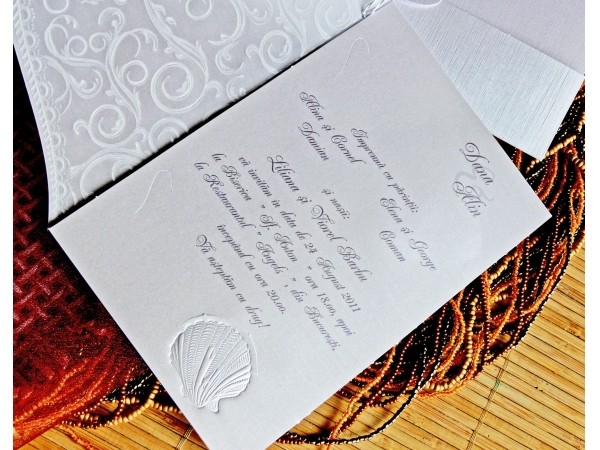 Dana
&
Alin
Împreună cu părinții:
Alina și Cornel
Damian
Elena și George
Coman
și nașii:
Liliana și Viorel Barbu
vă invităm în data de 24 August 2011
la Biserica " Sf. Anton " ora 18.00, apoi
la Restaurantul " Angels " , din București,
începând cu ora 20.00.
Vă așteptăm cu drag!